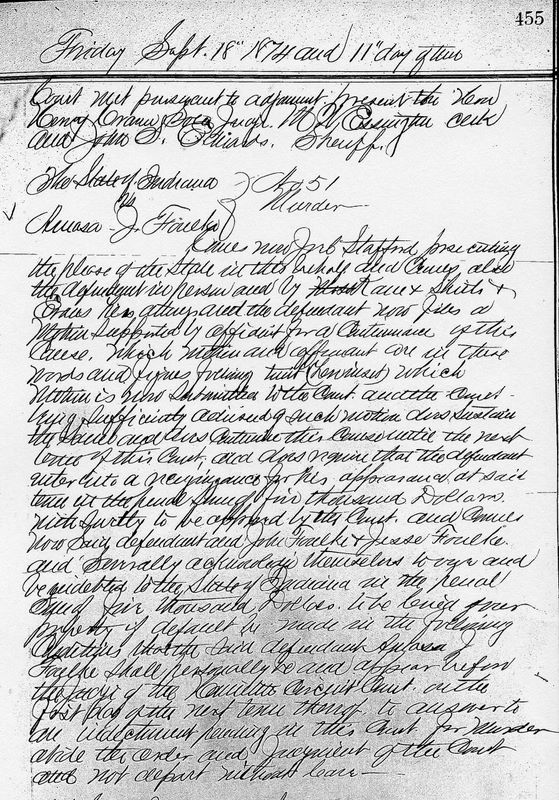 455
Friday Sept. 18" 1874 and 11" day of
Court met pursuant to present the Hon
Henry Craven Judge. M V Essington clerk
and John S. Edwards. Sheriff.
The State of Indiana
vs No 51
Murder
Amasa J. Foulke
Comes now Stafford prosecuting
the pleas of the State in this behalf and Comes also
the defendant in person and by Kane & Shirts &
his attys and the defendant now files a
Motion Supported by affidavit for a Continuance of this
Cause. Which Motion and affidavit are in these
words and figures towit (here inset) Which
Motion is now submitted to the Court. and the Court
being Sufficiently advised of such motion does Sustain
the same and does Continue this Cause until the next
term of this Court. and does require that the defendant
enter into a recognizance for his appearance at said
term in the penal Sum of five thousand Dollars
with surety to be approved by the Court. and Comes
now Said defendant and John Foulke & Jesse Foulke
and Severally acknowledge themselves to owe and
be indebted to the State of Indiana in the penal
Sum of five thousand Dollars. to be levied of our
property if default be made in the following
Conditions that the Said defendant Amasa J
Foulke shall personally be and appear before
the Judge of the Hamilton Circuit Court. on the
first day of the next term thereof to answer to
an indictment pending in this Court for Murder
abide the order and Judgment of the Court
and not depart without leave —